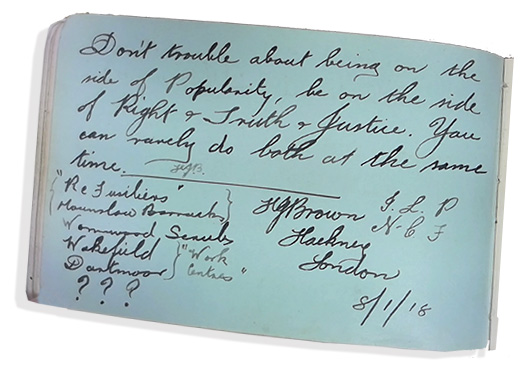 Don't trouble about being on the
side of Popularity, be on the side
of Right & Truth & Justice. You
can rarely do both at the same
time.
HGB.
"Re Fusiliers"
Hounslow Barracks
Wormwood Scrubs
Wakefield
Dartmoor
"Work
Centres"
? ? ?
HGBrown I. L. P
N. C F
Hackney
London
8/1/18